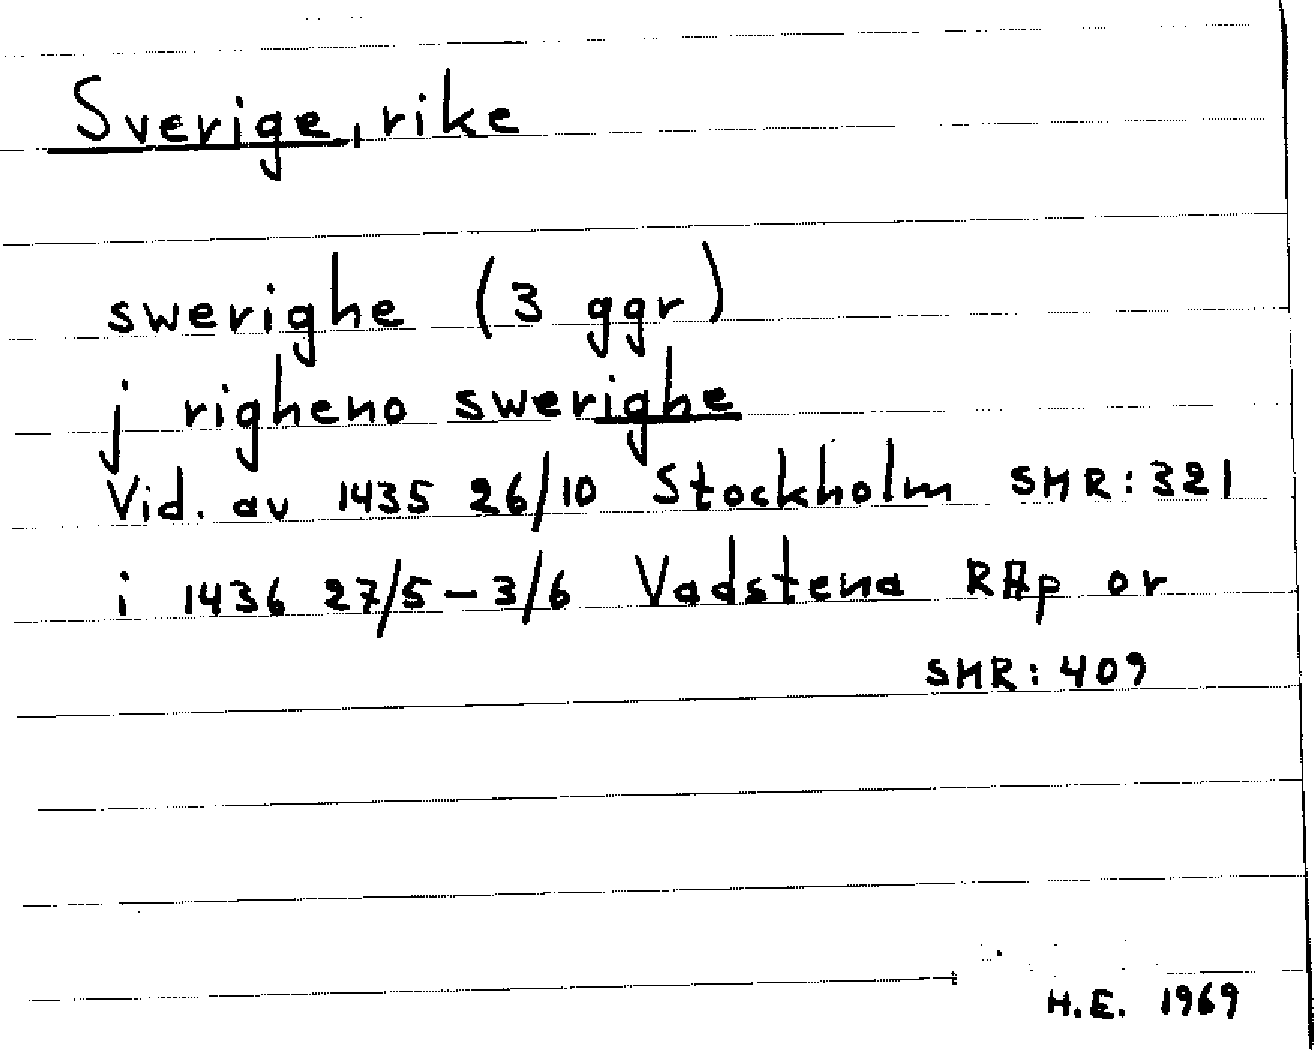 Sverige, rike
swerighe (3 ggr)
j righeno swerighe
Vid. av 1435 26/10 Stockholm SMR: 321
i 1436 27/5 - 3/6 Vadstena RAp or
SMR: 409
H.E. 1969